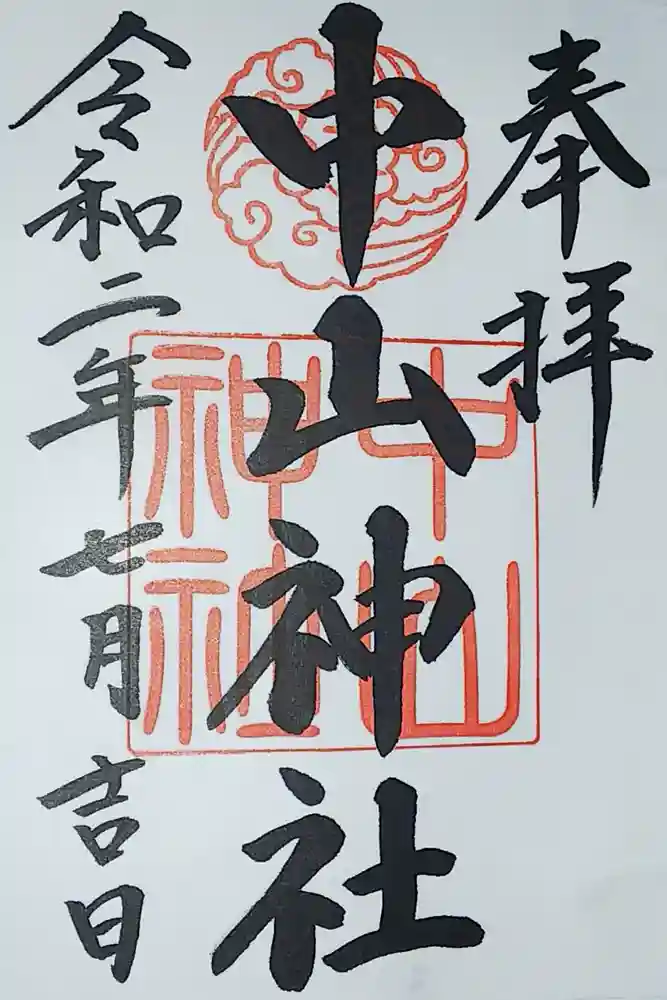 奉拝
中山神社
令和二年七月吉日
中山
神社